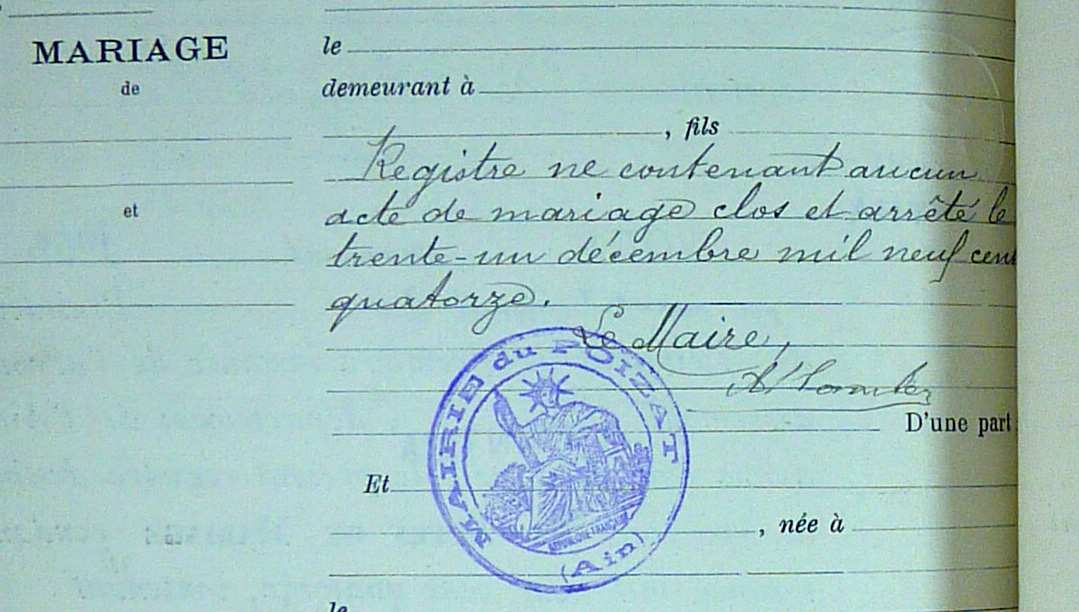 MARIAGE
de
et
le
demeurant à
, fils
Registre ne contenant aucun
acte de mariage clos et arrêté le
trente-un décembre mil neuf cent
quatorze.
Le Maire,
D'une part
MAIRIE du POIZAT
(Ain)
RÉPUBLIQUE FRANÇAISE
Et
, née à
le